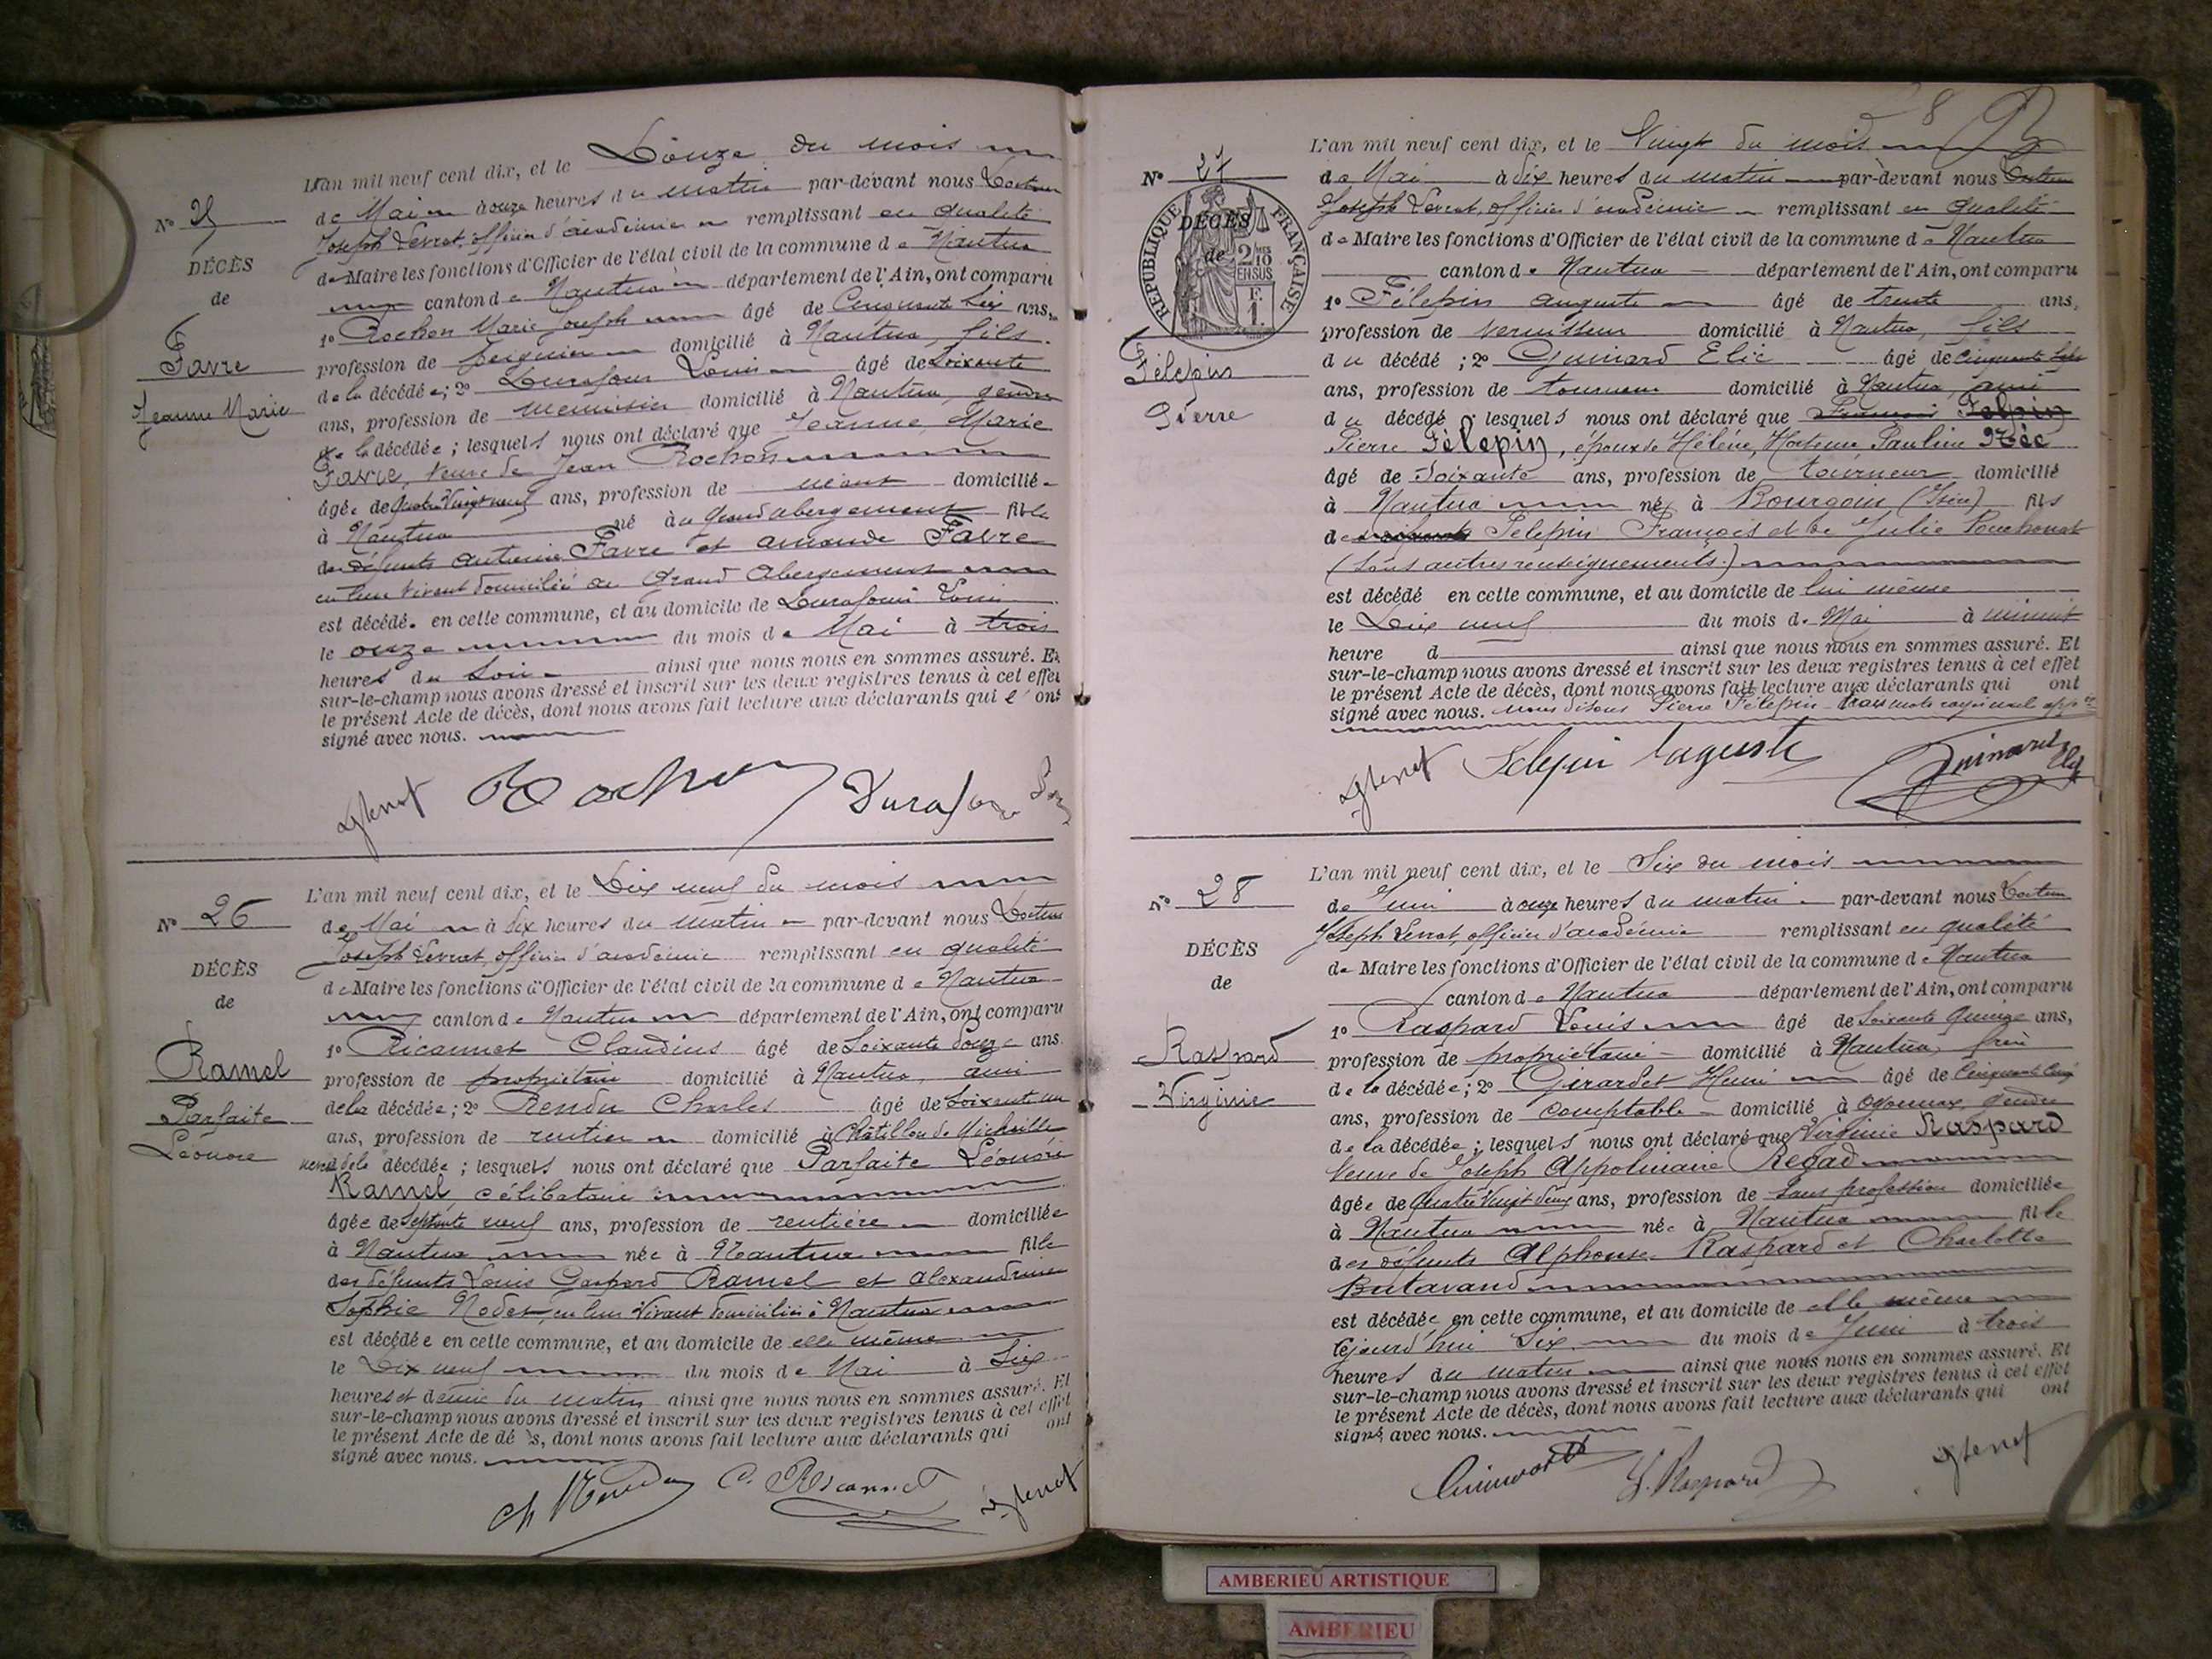 N° 25
DÉCÈS
de
Favre
Jeanne Marie
L'an mil neuf cent dix, et le Douze du mois
de Mai à onze heures du matin par-devant nous Docteur
Joseph Levrat, officier d'académie remplissant en qualité
de Maire les fonctions d'Officier de l'état civil de la commune de Nantua
canton de Nantua département de l'Ain, ont comparu
1° Rochon Marie Joseph âgé de Cinquante six ans,
profession de peignier domicilié à Nantua, fils
de la décédée; 2° Durafour Louis âgé de Soixante
ans, profession de menuisier domicilié à Nantua, gendre
de la décédée; lesquels nous ont déclaré que Jeanne, Marie
Favre, veuve de Jean Rochon
âgée de Quatre Vingt neuf ans, profession de néant domiciliée
à Nantua né au Grand abergement fille
des défunts Antoine Favre et Amande Favre
en leur vivant domiciliés au Grand Abergement
est décédée en cette commune, et au domicile de Durafour Louis
le onze du mois de Mai à trois
heures du soir ainsi que nous nous en sommes assuré. Et
sur-le-champ nous avons dressé et inscrit sur les deux registres tenus à cet effet
le présent Acte de décès, dont nous avons fait lecture aux déclarants qui l'ont
signé avec nous.
Rochon Durafour
N° 26
DÉCÈS
de
Ramel
Parfaite
Léonore
L'an mil neuf cent dix, et le Dix neuf du mois
de Mai à dix heures du matin par-devant nous Docteur
Joseph Levrat, officier d'académie remplissant en qualité
de Maire les fonctions d'Officier de l'état civil de la commune de Nantua
canton de Nantua département de l'Ain, ont comparu
1° Ricannet Claudius âgé de Soixante douze ans
profession de propriétaire domicilié à Nantua, ami
de la décédée; 2° Rendu Charles âgé de Soixante un
ans, profession de rentier domicilié à Châtillon de Michaille
de la décédée; lesquels nous ont déclaré que Parfaite Léonore
Ramel, célibataire
âgée de Septante neuf ans, profession de rentière domiciliée
à Nantua née à Nantua fille
des défunts Louis Gaspard Ramel et Alexandrine
Sophie Nodet, en leur vivant domiciliés à Nantua
est décédée en cette commune, et au domicile de elle même
le Dix neuf du mois de Mai à Six
heures et demie du matin ainsi que nous nous en sommes assuré. Et
sur-le-champ nous avons dressé et inscrit sur les deux registres tenus à cet effet
le présent Acte de décès, dont nous avons fait lecture aux déclarants qui ont
signé avec nous.
Ch Rendu
28
N° 27
RÉPUBLIQUE FRANÇAISE
DÉCÈS
de
2/10 EN SUS
F. 1.
Félepin
Pierre
L'an mil neuf cent dix, et le Vingt du mois
de Mai à dix heures du matin par-devant nous Docteur
Joseph Levrat, officier d'académie remplissant en qualité
de Maire les fonctions d'Officier de l'état civil de la commune de Nantua
canton de Nantua département de l'Ain, ont comparu
1° Félepin Auguste âgé de trente ans,
profession de vernisseur domicilié à Nantua, fils
du décédé; 2° Guinard Elie âgé de Cinquante Sept
ans, profession de tourneur domicilié à Nantua, ami
du décédé; lesquels nous ont déclaré que François Felpin
Pierre Félepin, époux de Hélène, Hortense Pauline Née
âgé de Soixante ans, profession de tourneur domicilié
à Nantua né à Bourgoin (Isère) fils
de Felepin François et de Julie
(sans autres renseignements.)
est décédé en cette commune, et au domicile de lui même
le Dix neuf du mois de Mai à minuit
heure d ainsi que nous nous en sommes assuré. Et
sur-le-champ nous avons dressé et inscrit sur les deux registres tenus à cet effet
le présent Acte de décès, dont nous avons fait lecture aux déclarants qui ont
signé avec nous. nous disons Pierre Félepin trois mots rayés nul
Felepin Auguste Guinard Elie
N° 28
DÉCÈS
de
Raspard
Virginie
L'an mil neuf cent dix, et le Six du mois
de Juin à onze heures du matin par-devant nous Docteur
Joseph Levrat, officier d'académie remplissant en qualité
de Maire les fonctions d'Officier de l'état civil de la commune de Nantua
canton de Nantua département de l'Ain, ont comparu
1° Raspard Louis âgé de Soixante Quinze ans,
profession de propriétaire domicilié à Nantua, frère
de la décédée; 2° Girardet Henri âgé de Cinquante Cinq
ans, profession de comptable domicilié à Oyonnax, gendre
de la décédée; lesquels nous ont déclaré que Virginie Raspard
Veuve de Joseph Appolinaire Regad
âgée de Quatre Vingt deux ans, profession de Sans profession domiciliée
à Nantua née à Nantua fille
des défunts Alphonse Raspard et Charlotte
Butavand
est décédée en cette commune, et au domicile de elle même
cejourd'hui Six du mois de Juin à trois
heures du matin ainsi que nous nous en sommes assuré. Et
sur-le-champ nous avons dressé et inscrit sur les deux registres tenus à cet effet
le présent Acte de décès, dont nous avons fait lecture aux déclarants qui ont
signé avec nous.
L. Raspard
AMBERIEU ARTISTIQUE
AMBERIEU